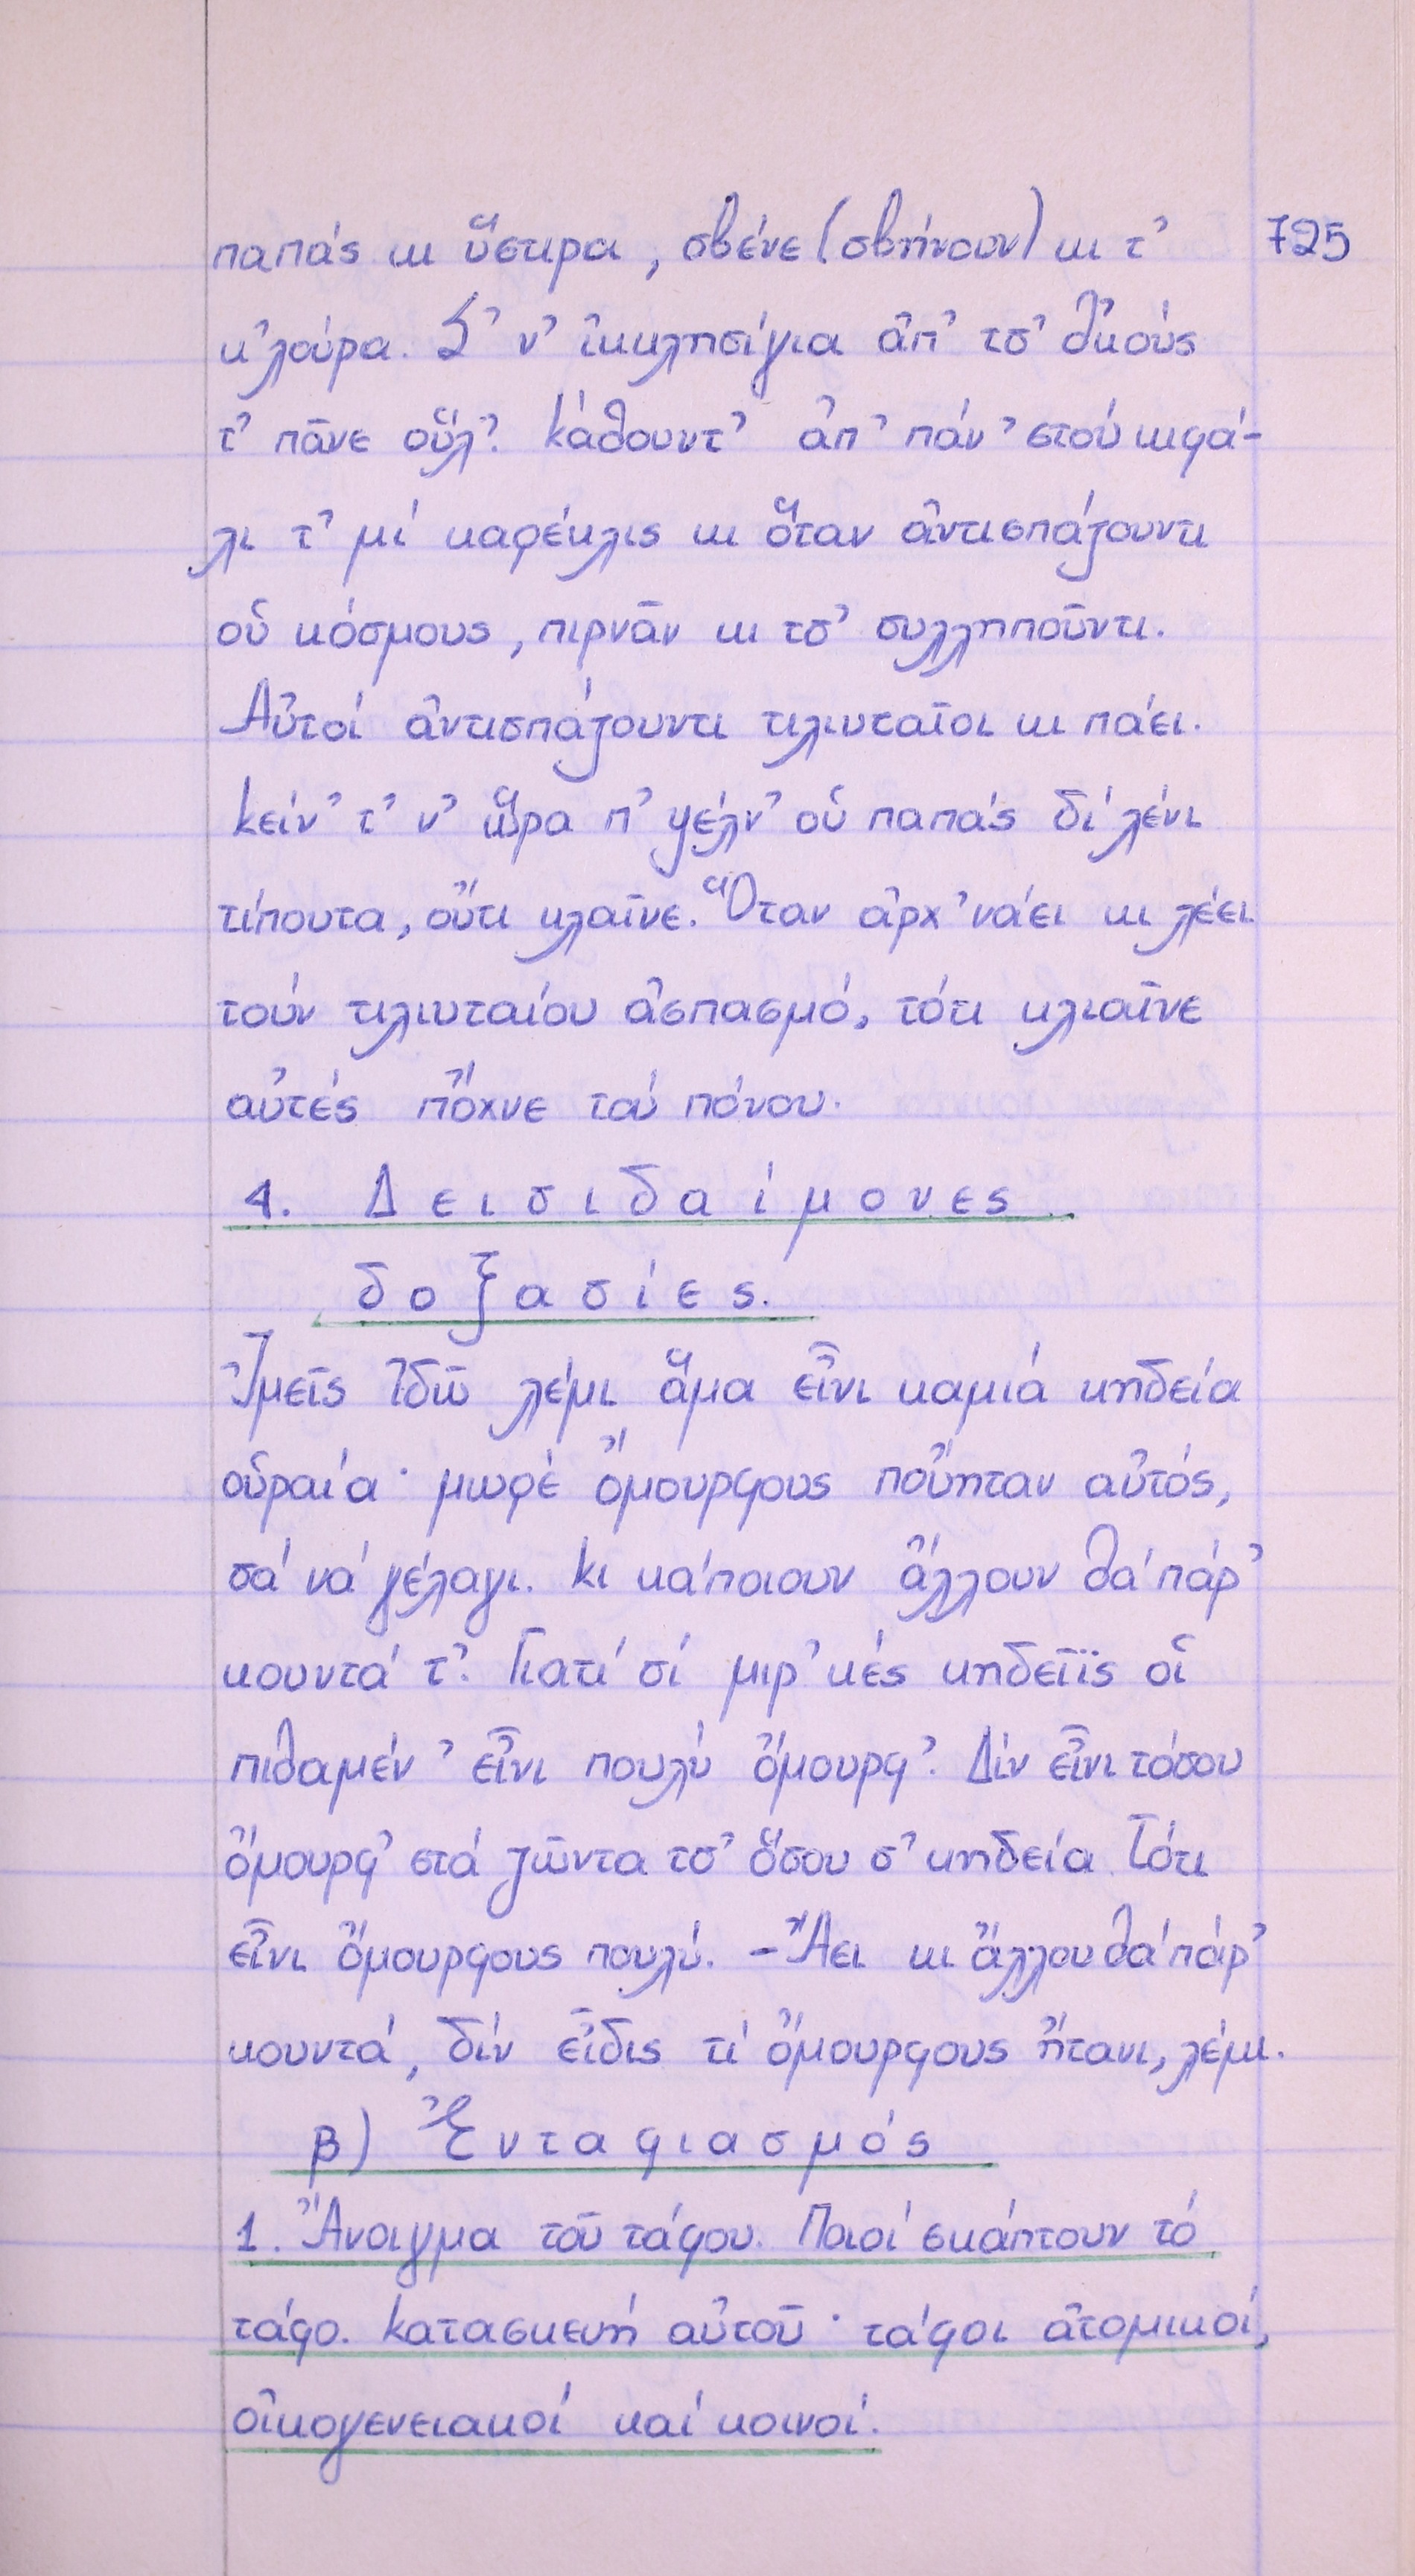 παπάς κι ὕστιρα, σβένε (σβήνουν) κι τ᾽ 725
κ᾽λούρα. Σ᾽ ν᾽ ἰκκλησίγια ἀπ᾽ τσ᾽ δ᾽κούς
τ᾽ πᾶνε οὕλ᾽. Κάθουντ᾽ ἀπ᾽ πάν᾽ στού κιφά-
λι τ᾽ μί καρέκλις κι ὅταν ἀντισπάζουντι
οὑ κόσμους, πιρνᾶν κι τσ᾽ συλληποῦντι.
Αὐτοί ἀντισπάζουντι τιλιυταῖοι κι πάει.
Κείν᾽ τ᾽ ν᾽ ὥρα π᾽ ψέλν᾽ οὑ παπάς δί λένι
τίπουτα, οὔτι κλαῖνε. Ὅταν ἀρχ᾽νάει κι λέει
τούν τιλιυταίου ἀσπασμό, τότι κλιαῖνε
αὐτές πὄχνε τού πόνου.
4. Δεισιδαίμονες
δοξασίες.
Ἰμεῖς ἰδῶ λέμι ἅμα εἶνι καμιά κηδεία
οὑραία· μωρέ ὄμουρφους ποὔηταν αὐτός,
σά νά γέλαγι. Κι κάποιουν ἄλλουν θά πάρ᾽
κουντά τ᾽. Γιατί σί μιρ᾽κές κηδεῖϊς οἱ
πιθαμέν᾽ εἶνι πουλύ ὄμουρφ᾽. Δίν εἶνι τόσου
ὄμουρφ᾽ στά ζῶντα τσ᾽ ὅσου σ᾽ κηδεία. Τότι
εἶνι ὄμουρφους πουλύ. - Ἄει κι ἄλλου θά πάρ᾽
κουντά, δίν εἶδις τί ὄμουρφους ἤτανι, λέμι.
β) Ἐνταφιασμός
1. Ἄνοιγμα τοῦ τάφου. Ποιοί σκάπτουν τό
τάφο. Κατασκευή αὐτοῦ· τάφοι ἀτομικοί,
οἰκογενειακοί καί κοινοί.